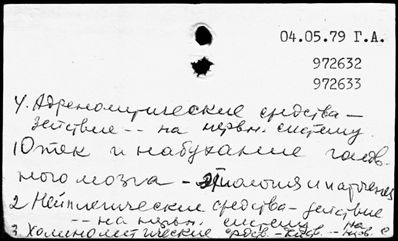 04.05.79 Г.А.
972632
972633
4. Адренолитические средства –
действие -- на нервн. систему.
1 Отек и набухание голов-
ного мозга – этиология и патогенез
2 Нейроплегические средства – действие
-- на нервн. систему
3. Холинолитические средс. – действ. -- на нерв. с